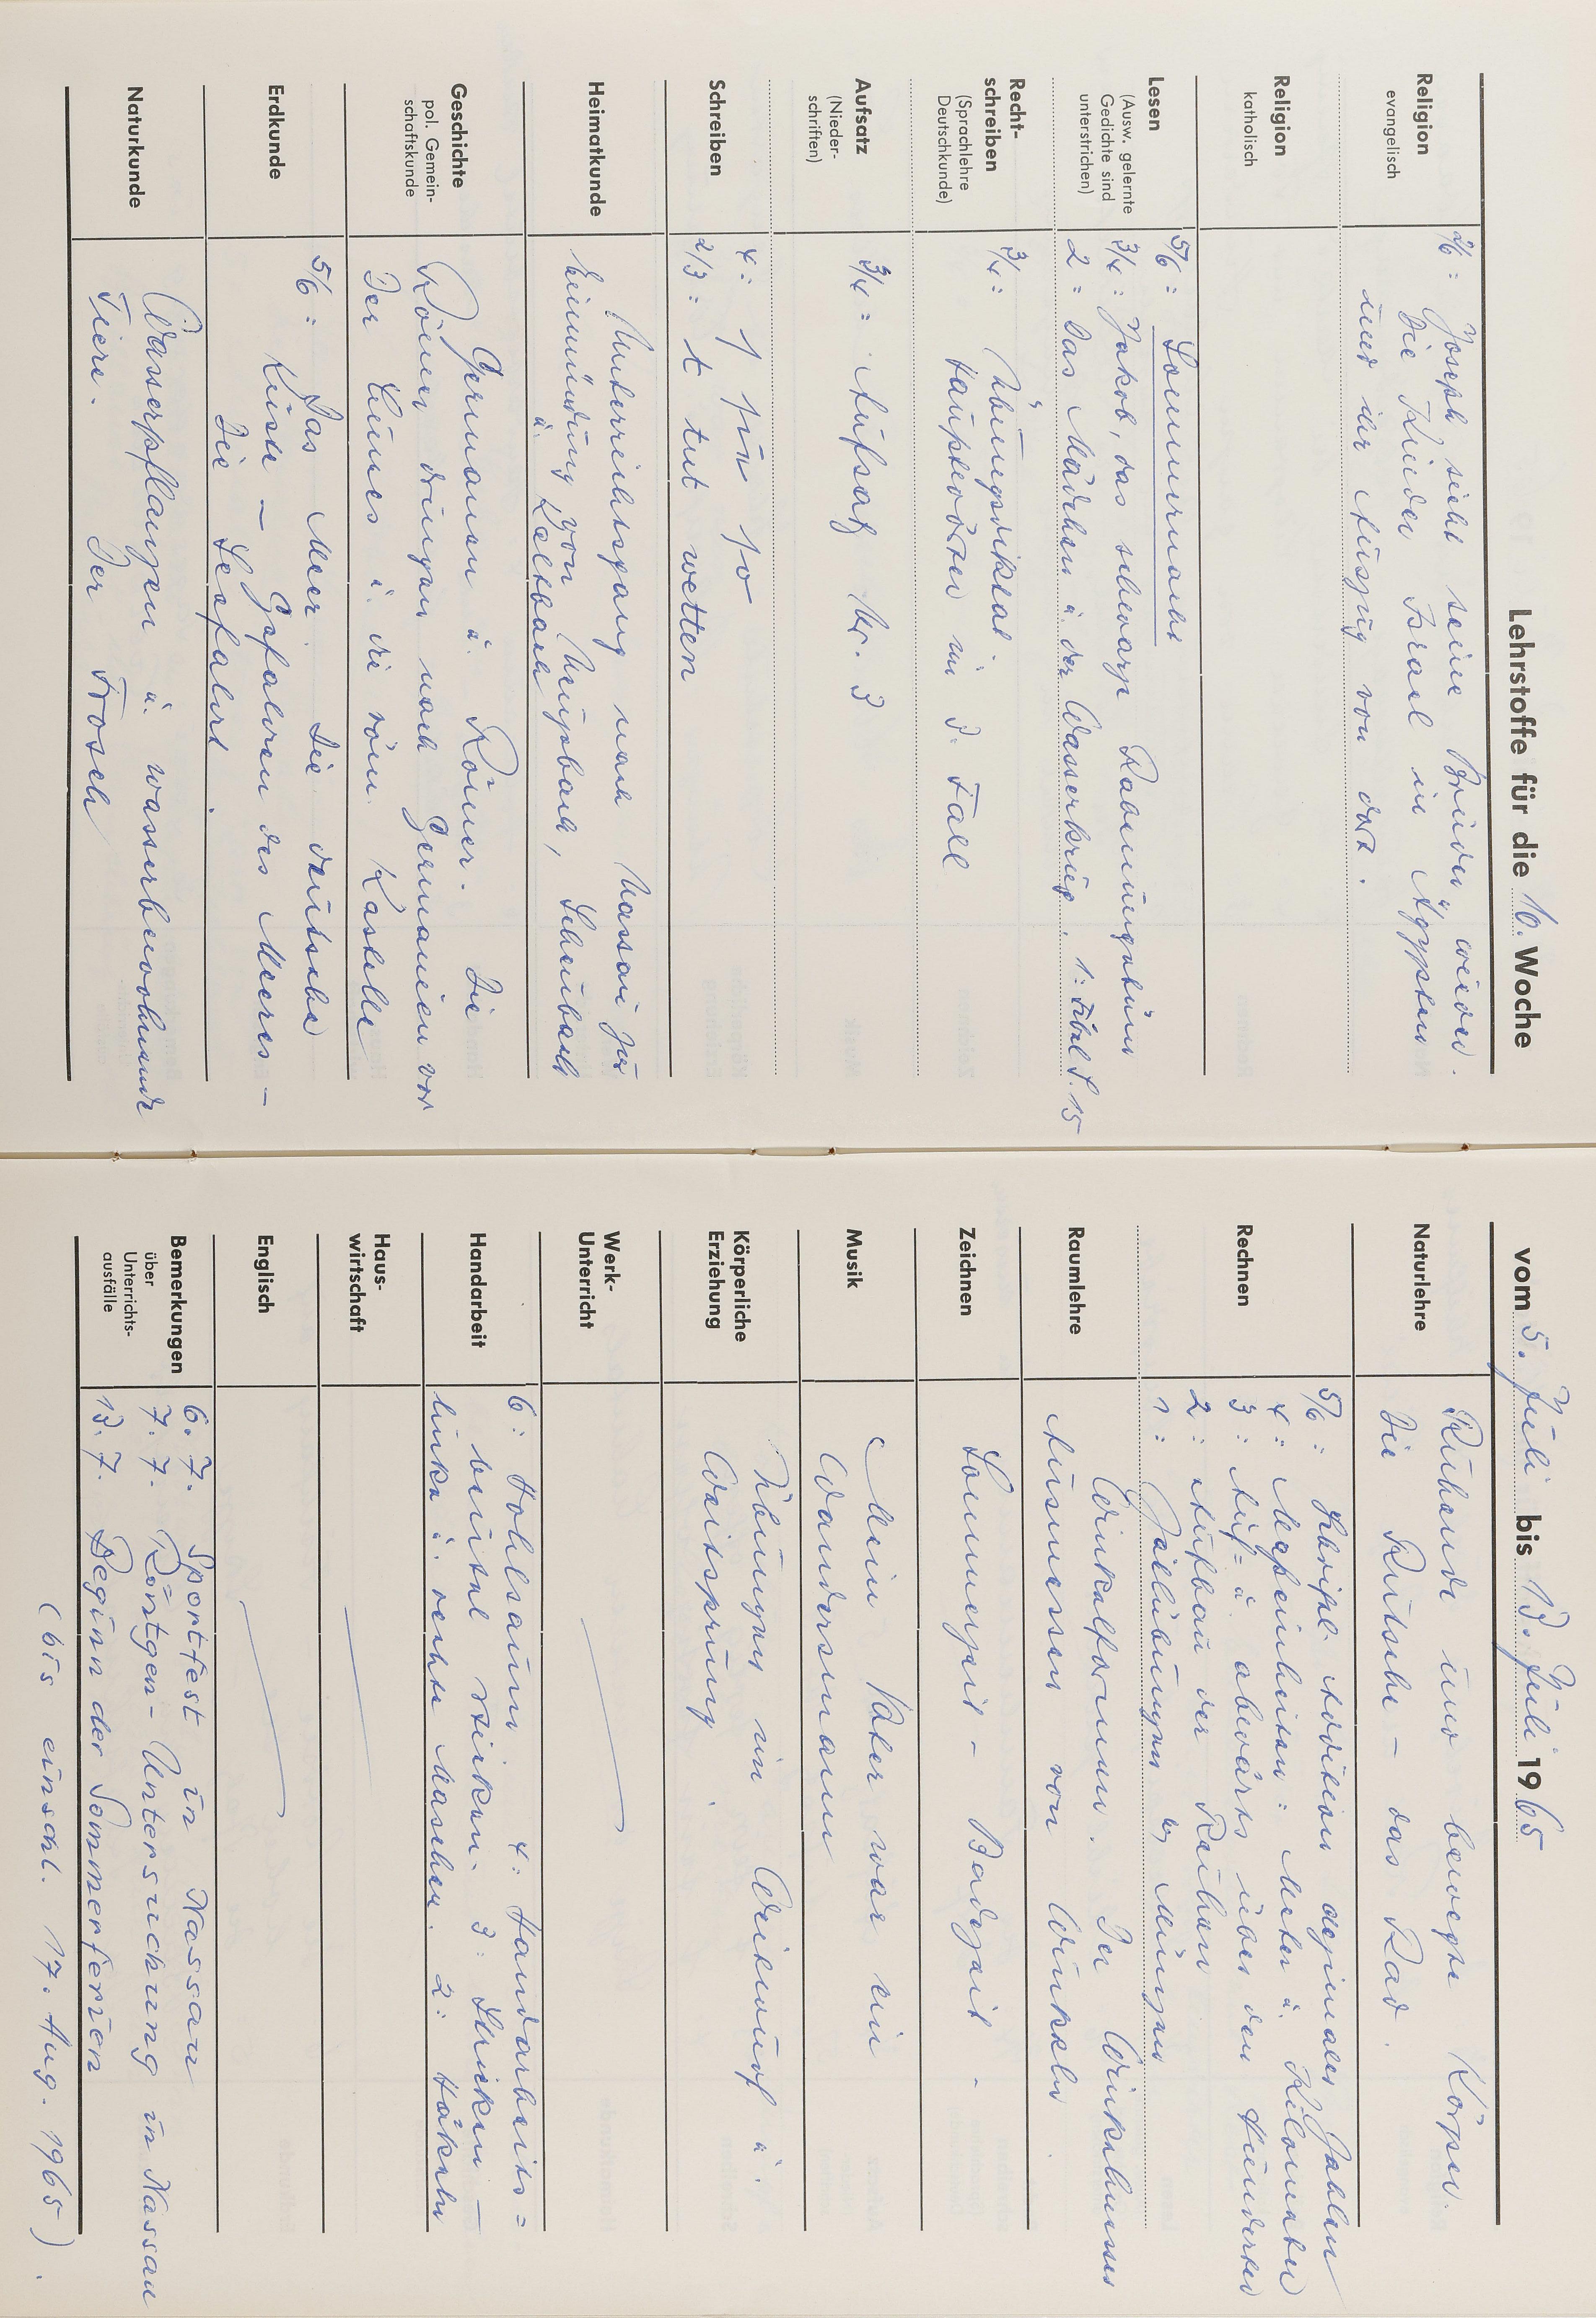 Lehrstoffe für die 16. Woche
Religion
evangelisch
2/6: Joseph sieht seine Brüder wieder.
Die Kinder Israel in Ägypten
und ihr Auszug von dort.
Religion
katholisch
Lesen
(Ausw. gelernte
Gedichte sind
unterstrichen)
5/6: Sommernacht
3/4: Jakob, das schwarze
2: Das Mädchen u. der Wasserkrug. 1: Fibel S. 15
Recht-
schreiben
(Sprachlehre
Deutschkunde)
3/4: Übungsdiktat.
Hauptwörter im 3. Fall
Aufsatz
(Nieder-
schriften)
3/4: Aufsatz Nr. 3
Schreiben
4: p für po
2/3: t tut wetten
Heimatkunde
Unterrichtsgang nach Nassau zur
Einmündung von Mühlbach, Scheubach
u. Kaltbach
Geschichte
pol. Gemein-
schaftskunde
Germanen u. Römer. Die
Römer dringen nach Germanien vor
Der Limes u. die röm. Kastelle
Erdkunde
5/6: Das Meer. Die deutsche
Küste – Gefahren des Meeres –
Die Seefahrt.
Naturkunde
Wasserpflanzen u. wasserbewohnende
Tiere. Der Frosch
vom 5. Juli bis 13. Juli 1965
Naturlehre
Ruhende und bewegte Körper.
Die Rutsche – das Rad.
Rechnen
5/6: Schriftl. Addition dezimaler Zahlen
4: Meßeinheiten: Meter u. Kilometer
3: Auf= u. abwärts über den Hunderter
2: Aufbau der Reihen
1: Zählübungen m. Münzen
Raumlehre
Winkelformen. Der Winkelmesser
Ausmessen von Winkeln.
Zeichnen
Sommerzeit – Badezeit –
Musik
Mein Vater war ein
Wandersmann
Körperliche
Erziehung
Übungen im Weitwurf u.
Weitsprung.
Werk-
Unterricht
Handarbeit
6: Hohlsaum 4: Handarbeits=
beutel sticken. 3: Stricken –
linke u. rechte Maschen. 2: Häkeln
Haus-
wirtschaft
Englisch
Bemerkungen
über
Unterrichts-
ausfälle
6. 7. Sportfest in Nassau
7. 7. Röntgen-Untersuchung in Nassau
13. 7. Beginn der Sommerferien
(bis einschl. 17. Aug. 1965).